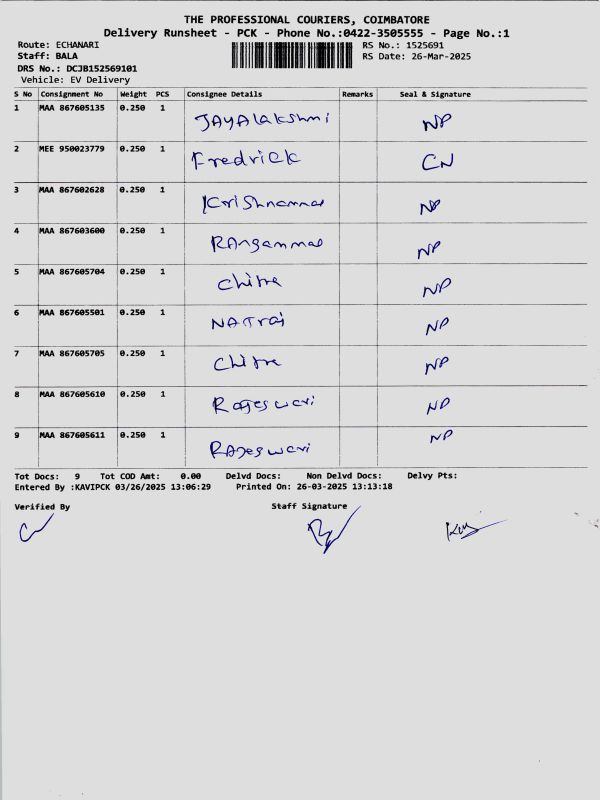 THE PROFESSIONAL COURIERS, COIMBATORE
Delivery Runsheet - PCK - Phone No.:0422-3505555 - Page No.:1
Route: ECHANARI RS No.: 1525691
Staff: BALA RS Date: 26-Mar-2025
DRS No.: DCJB152569101
Vehicle: EV Delivery
S No Consignment No Weight PCS Consignee Details Remarks Seal & Signature
1 MAA 867605135 0.250 1 JAYALakshmi NP
2 MEE 950023779 0.250 1 Fredrick CN
3 MAA 867602628 0.250 1 Krishnammal NP
4 MAA 867603600 0.250 1 RAngammal NP
5 MAA 867605704 0.250 1 Chitra NP
6 MAA 867605501 0.250 1 NATraj NP
7 MAA 867605705 0.250 1 Chitra NP
8 MAA 867605610 0.250 1 Rajeswari NP
9 MAA 867605611 0.250 1 RAjeswari NP
Tot Docs: 9 Tot COD Amt: 0.00 Delvd Docs: Non Delvd Docs: Delvy Pts:
Entered By :KAVIPCK 03/26/2025 13:06:29 Printed On: 26-03-2025 13:13:18
Verified By Staff Signature